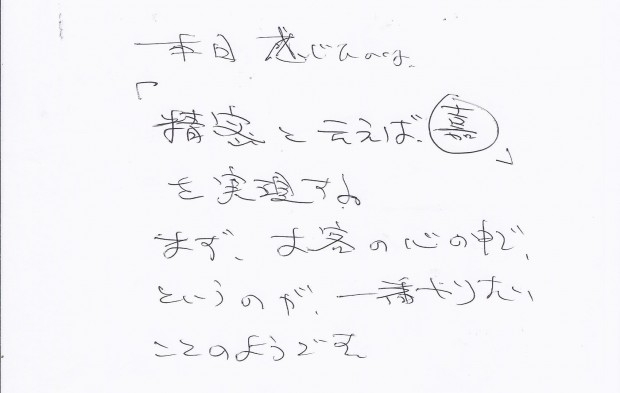 本日 感じたのは、
「
精密と云えば、嘉
」
を実現する。
まず、お客の心の中で、
というのが、一番やりたい
ことのようです。